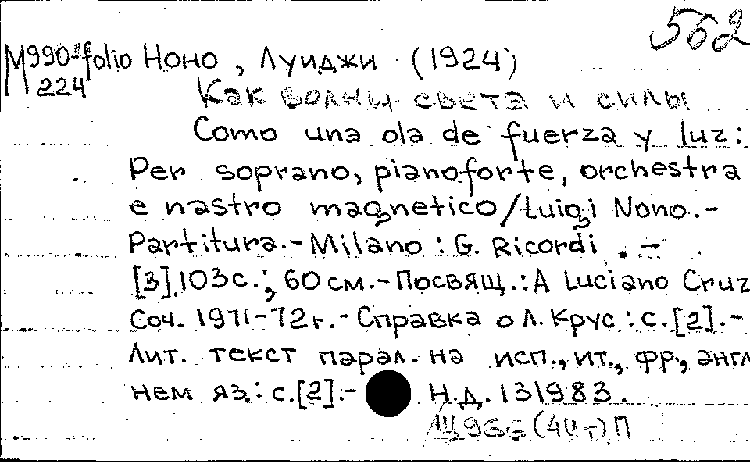 562
М990-folio Ноно, Луиджи (1924)
224
Как волны света и силы
Como una ola de fuerza y luz:
Per soprano, pianoforte, orchestra
e nastro magnetico/Luigi Nono.-
Partitura.-Milano: G. Ricordi. -
[3],103с.; 60см.-Посвящ.: A Luciano Cruz
Соч. 1971-72г.-Справка о Л. Крус: с.[2].-
Лит. текст парал. на исп., ит., фр., англ
нем яз.: с.[2].- Н.д. 131983.